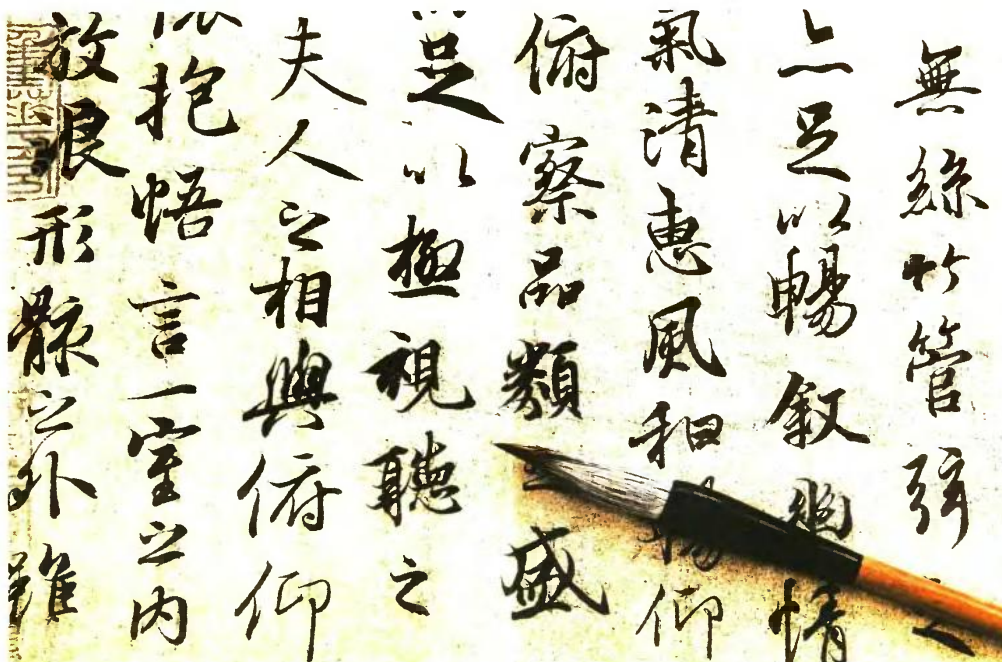 無絲竹管弦之
亦足以暢叙幽情
氣清惠風和暢仰
俯察品類之盛
足以極視聽之
夫人之相與俯仰
抱悟言一室之內
放浪形骸之外雖